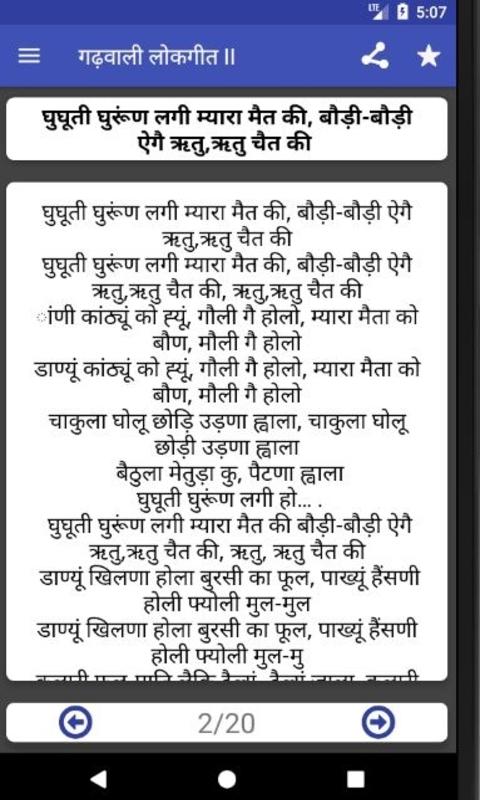 LTE 5:07
गढ़वाली लोकगीत II
घुघूती घुरूंण लगी म्यारा मैत की, बौड़ी-बौड़ी
ऐगै ऋतु,ऋतु चैत की
घुघूती घुरूंण लगी म्यारा मैत की, बौड़ी-बौड़ी ऐगै
ऋतु,ऋतु चैत की
घुघूती घुरूंण लगी म्यारा मैत की, बौड़ी-बौड़ी ऐगै
ऋतु,ऋतु चैत की, ऋतु,ऋतु चैत की
ांणी कांठ्यूं को ह्यूं, गौली गै होलो, म्यारा मैता को
बौण, मौली गै होलो
डाण्यूं कांठ्यूं को ह्यूं, गौली गै होलो, म्यारा मैता को
बौण, मौली गै होलो
चाकुला घोलू छोड़ि उड़णा ह्वाला, चाकुला घोलू
छोड़ी उड़णा ह्वाला
बैठुला मेतुड़ा कु, पैटणा ह्वाला
घुघूती घुरूंण लगी हो... .
घुघूती घुरूंण लगी म्यारा मैत की बौड़ी-बौड़ी ऐगै
ऋतु,ऋतु चैत की, ऋतु, ऋतु चैत की
डाण्यूं खिलणा होला बुरसी का फूल, पाख्यूं हैंसणी
होली फ्योली मुल-मुल
डाण्यूं खिलणा होला बुरसी का फूल, पाख्यूं हैंसणी
होली फ्योली मुल-मु
2/20